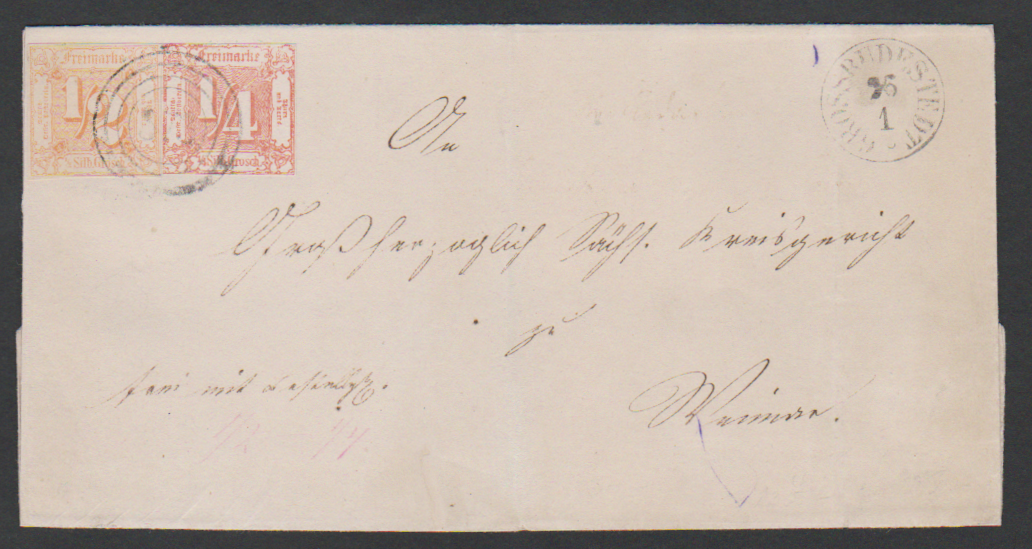 Freimarke
1/2
1/2 Silb. Grosch.
Freimarke
1/4
1/4 Silb. Grosch.
GROSSRUDESTEDT
26
1
An
Großherzoglich Sächs. Kreisgericht
zu
Weimar.
frei mit
1/2 1/4